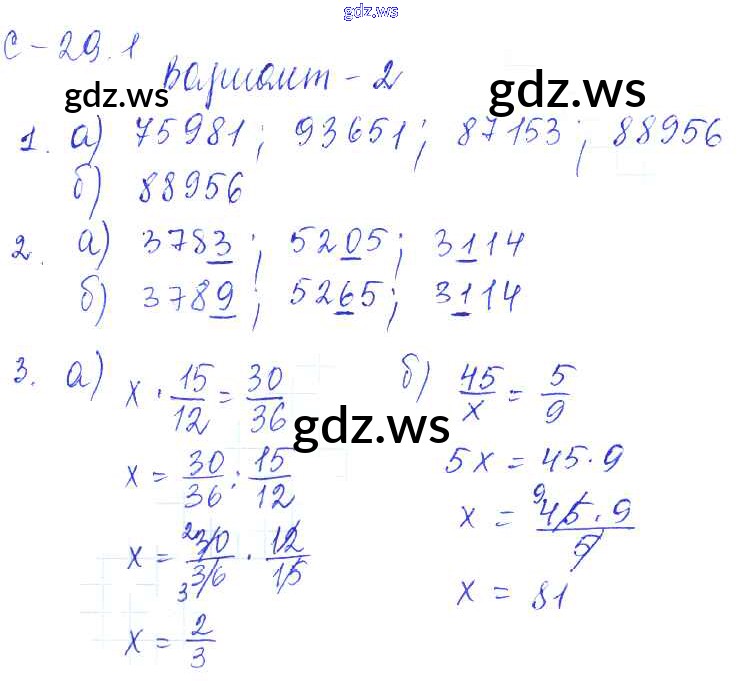 gdz.ws
С-29.1
Вариант - 2
gdz.ws
gdz.ws
1. а) 75981; 93651; 87153; 88956
б) 88956
2. а) 3783; 5205; 3114
б) 3789; 5265; 3114
3. а) x · 15/12 = 30/36
x = 30/36 : 15/12
x = 30/36 · 12/15 2 3
x = 2/3
б) 45/x = 5/9
5x = 45 · 9
x = 45 · 9/5 9
x = 81
gdz.ws